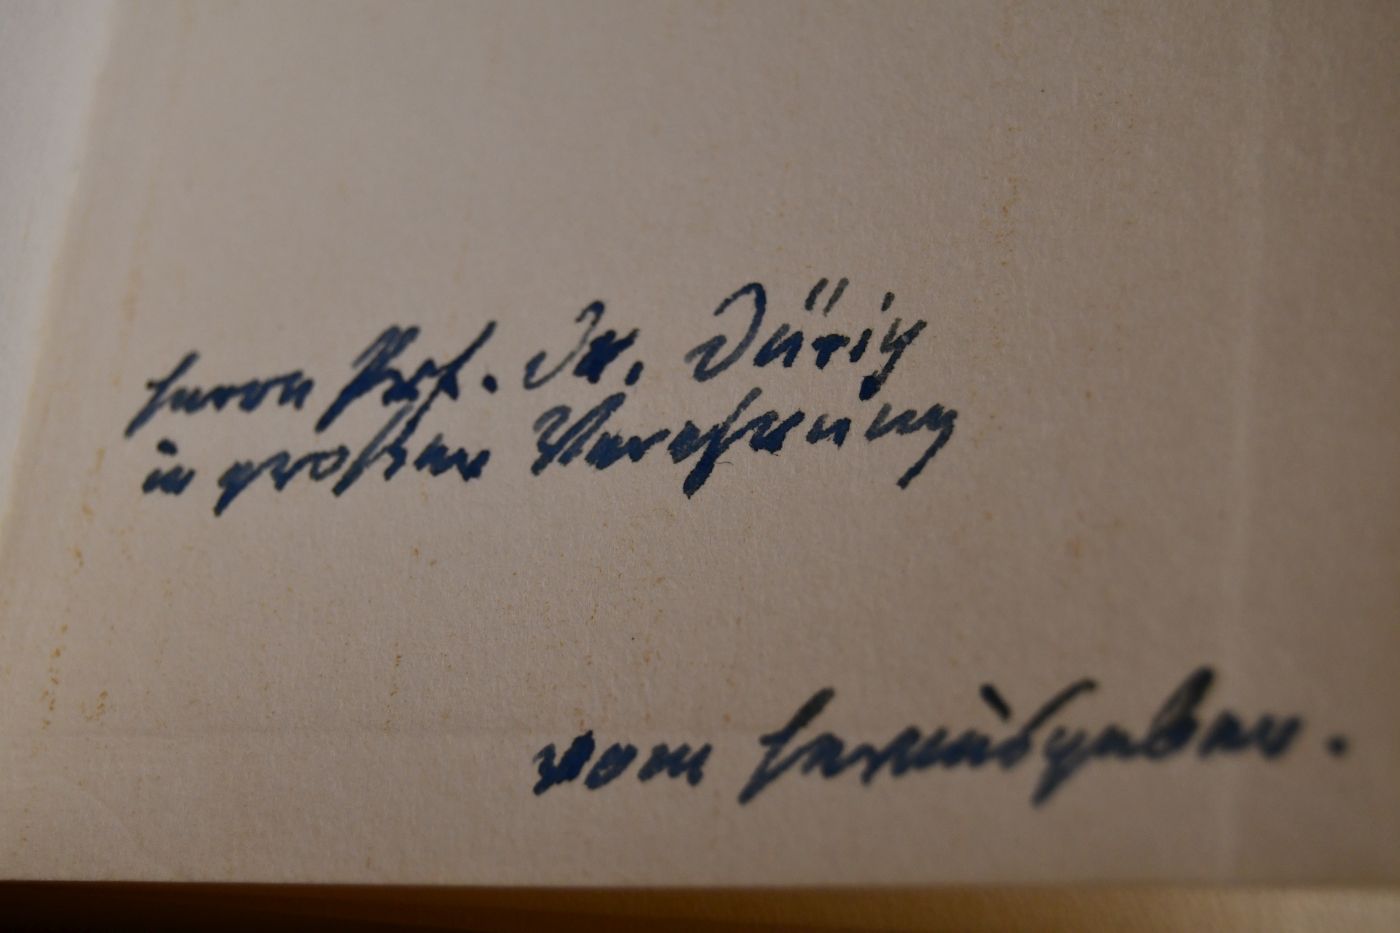 Herrn Prof. Dr. Dürig
in großer Verehrung
vom Herausgeber.